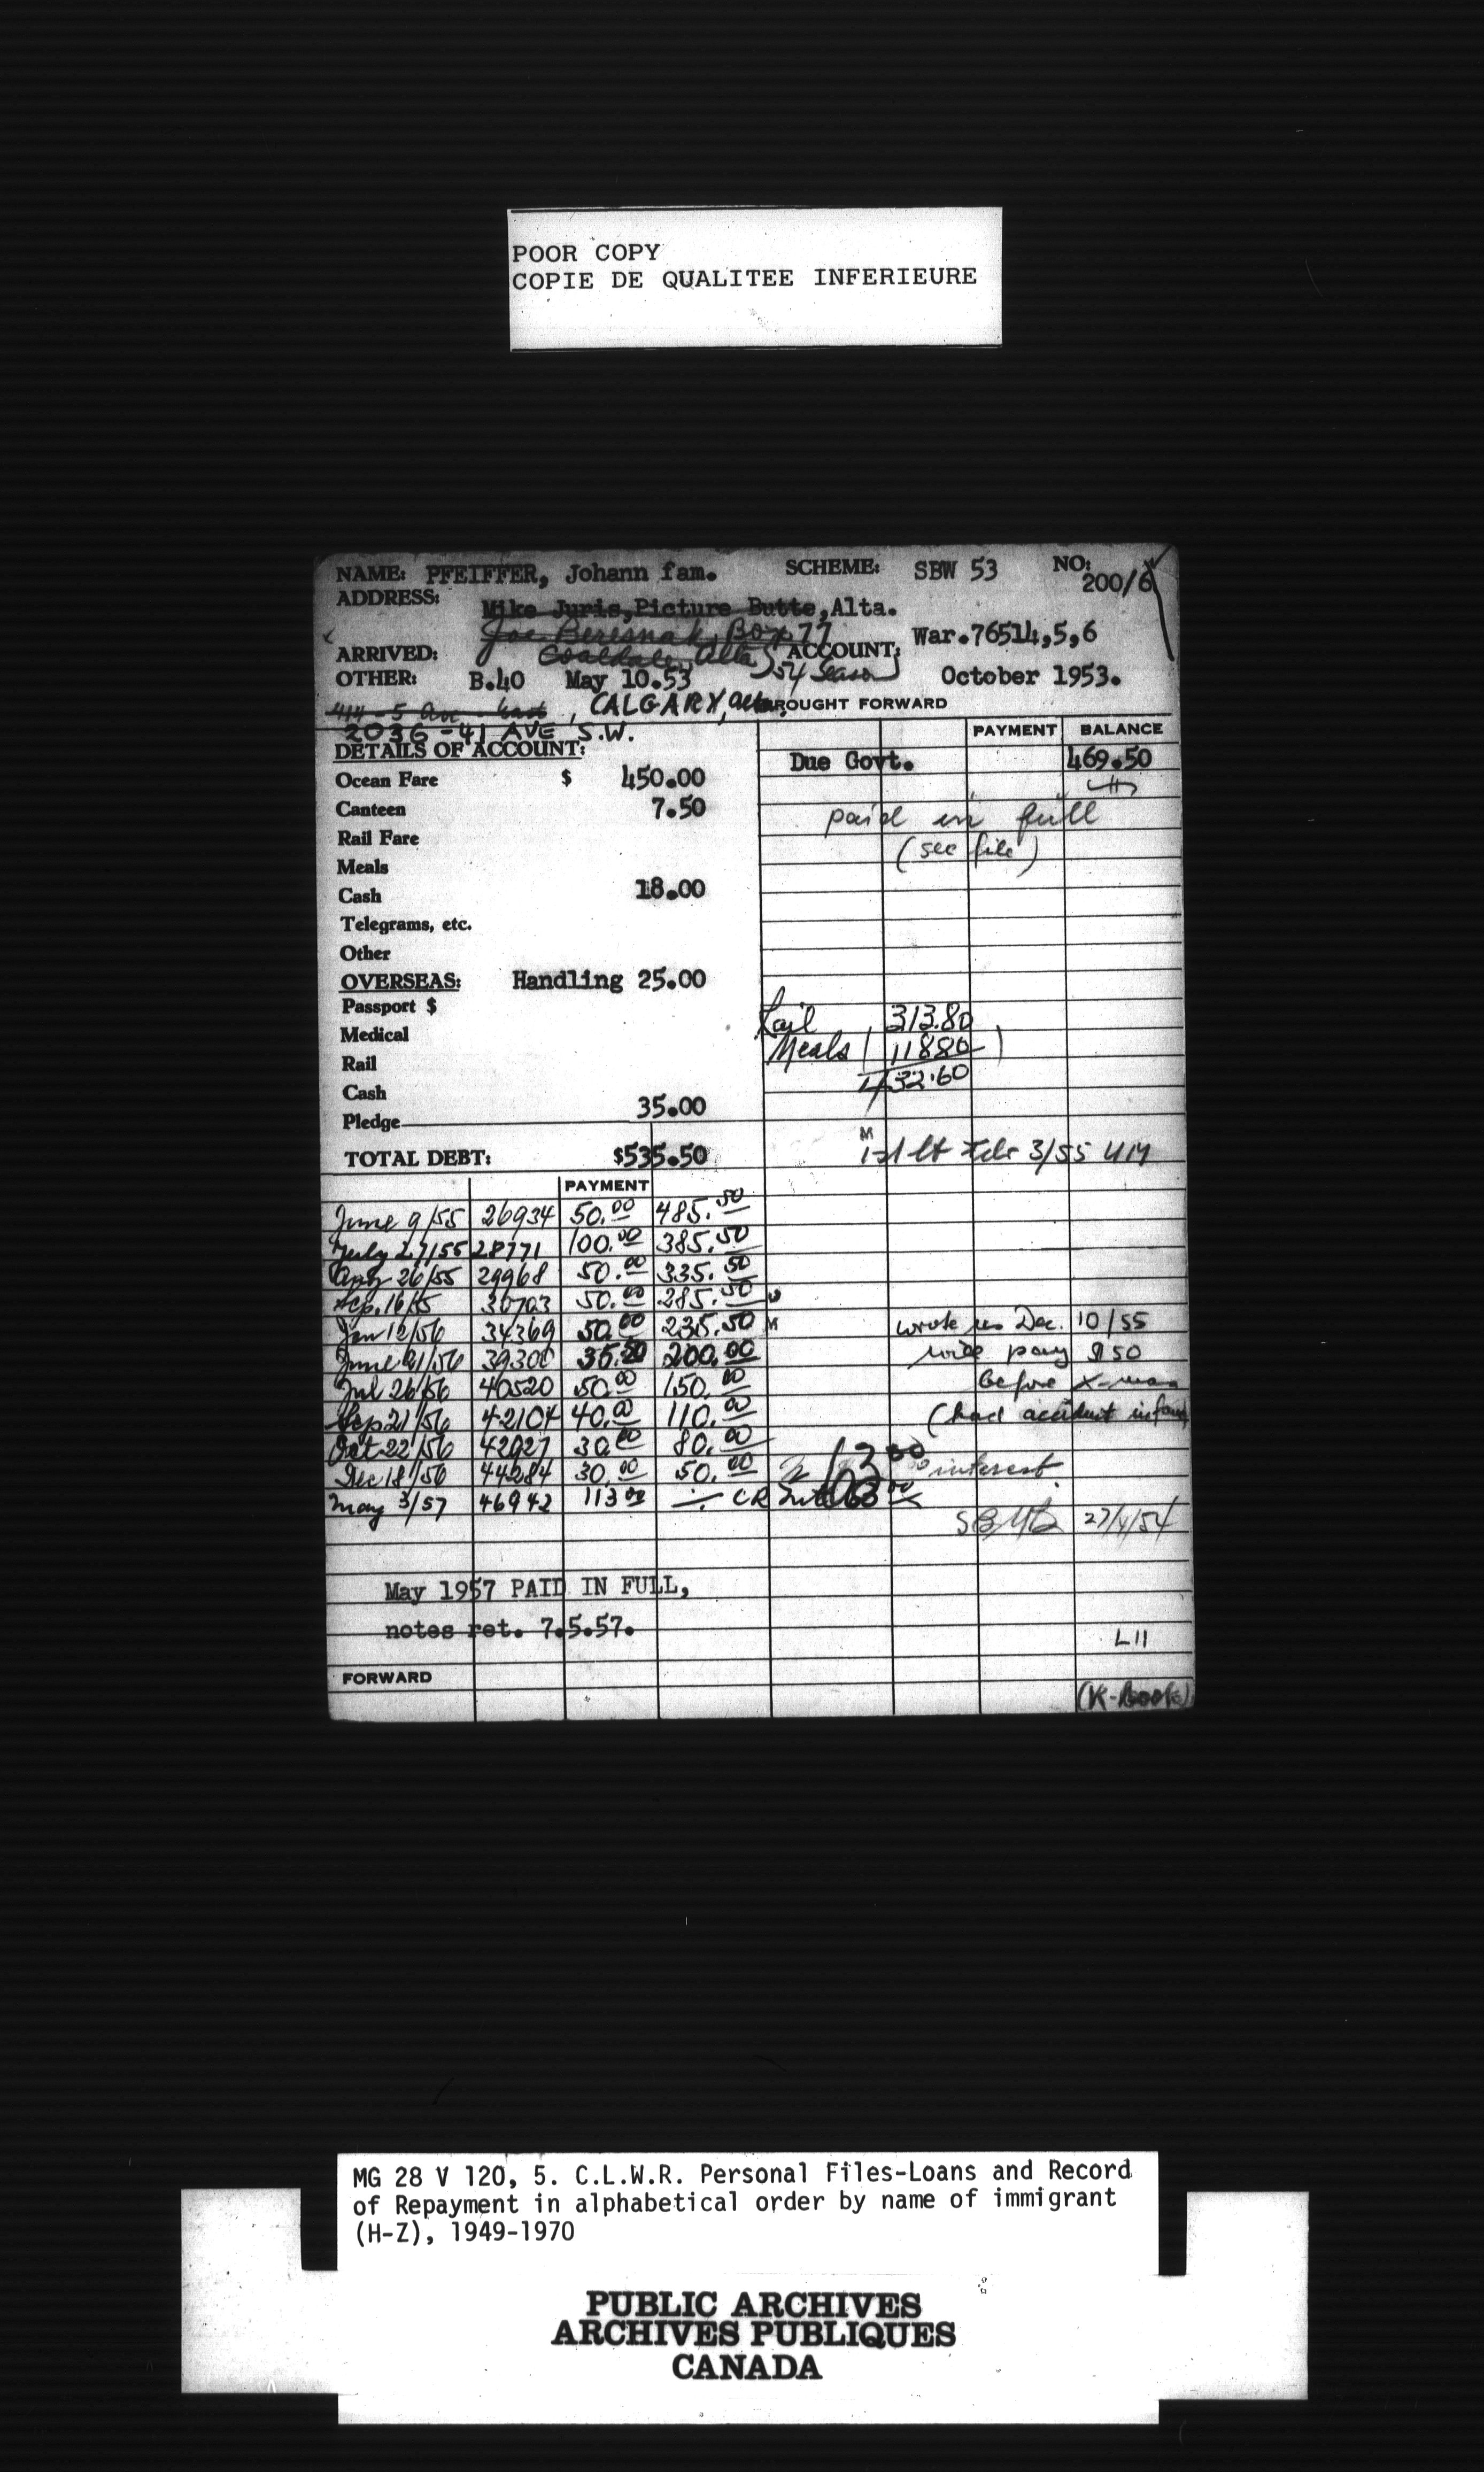 POOR COPY
COPIE DE QUALITEE INFERIEURE
NAME: PFEIFFER, Johann fam. SCHEME: SBW 53 NO: 200/6
ADDRESS: Mike Juris, Picture Butte, Alta.
Joe Beresnak, Box 77 War.76514,5,6
ARRIVED: Coaldale, Alta ACCOUNT:
OTHER: B.40 May 10.53 54 Season October 1953.
414 - 5 Ave. East, CALGARY, Alta. BROUGHT FORWARD
2036 - 41 AVE S.W.
PAYMENT BALANCE
DETAILS OF ACCOUNT:
Due Govt. 469.50
Ocean Fare $ 450.00
Canteen 7.50
paid in full
Rail Fare
(see file)
Meals
Cash 18.00
Telegrams, etc.
Other
OVERSEAS: Handling 25.00
Passport $
Rail 313.80
Medical
Meals 118.80
Rail
432.60
Cash
35.00
Pledge
TOTAL DEBT: $535.50
M
1st lt Feb 3/55
PAYMENT
June 9/55 26934 50.00 485.50
July 27/55 28771 100.00 385.50
Aug 26/55 29968 50.00 335.50
Sep. 16/55 30703 50.00 285.50
Jan 12/56 34369 50.00 235.50 M wrote us Dec. 10/55
June 21/56 39300 35.50 200.00 will pay $50
Jul 26/56 40520 50.00 150.00 before X-mas
Sep 21/56 42104 40.00 110.00 (had accident in fam
Oct 22/56 42927 30.00 80.00
Dec 18/56 44284 30.00 50.00 interest
May 3/57 46942 113.00 CR Int 63.00
27/4/54
May 1957 PAID IN FULL,
notes ret. 7.5.57.
L11
FORWARD
(K-Book)
MG 28 V 120, 5. C.L.W.R. Personal Files-Loans and Record
of Repayment in alphabetical order by name of immigrant
(H-Z), 1949-1970
PUBLIC ARCHIVES
ARCHIVES PUBLIQUES
CANADA